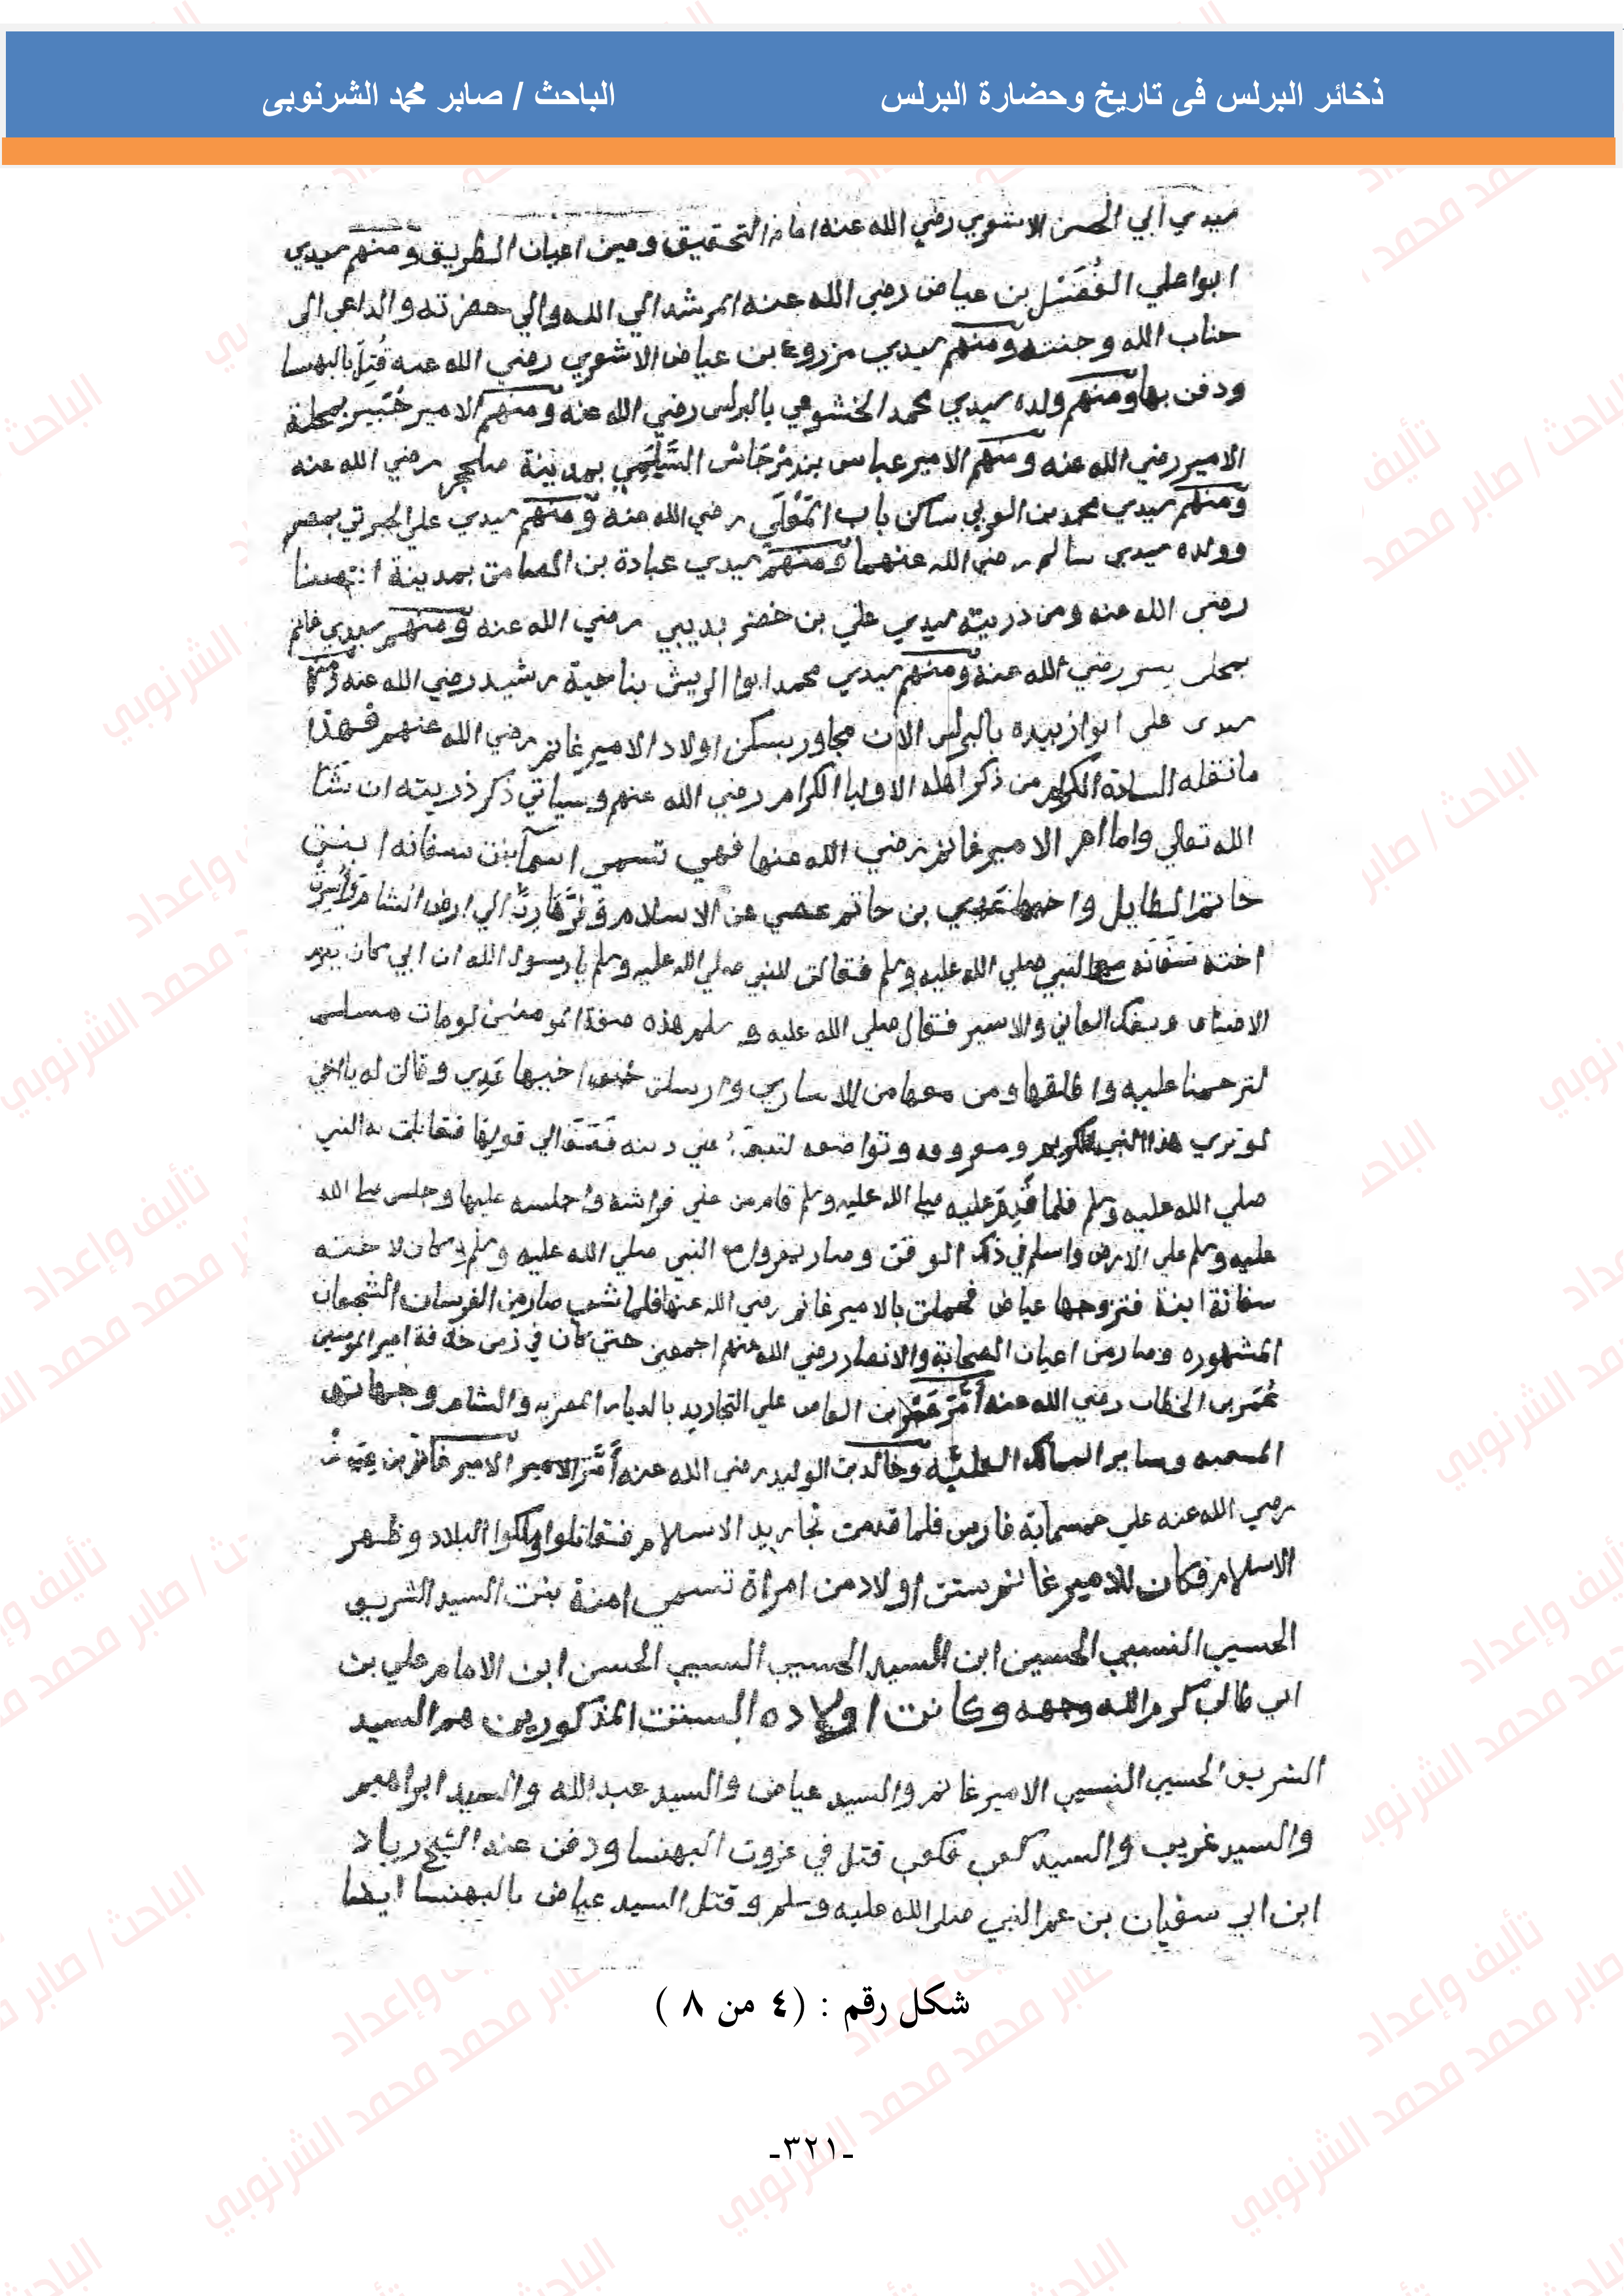 ذخائر البرلس فى تاريخ وحضارة البرلس
الباحث / صابر محمد الشرنوبى
سيدي ابي الحسن الاشوي رضي الله عنه امام التحقيق ومين اعيان الطريق ومنهم سيدي
ابوا علي الفضيل بن عياض رضي الله عنه المرشد الي الله والي حضرته والداعي الى
جناب الله وجنته ومنهم سيدي مزروع بن عياض الاشوي رضي الله عنه قتل بالبهنسا
ودفن بها ومنهم ولده سيدي محمد الخشوعي بالبرلس رضي الله عنه ومنهم الامير خبير بمحلة
الامير رضي الله عنه ومنهم الامير عباس بن مرداش السلمي بمدينة صلحجر رضي الله عنه
ومنهم سيدي محمد بن الوبي ساكن باب المعلي رضي الله عنه ومنهم سيدي علي الجبرتي بمصر
وولده سيدي سالم رضي الله عنهما ومنهم سيدي عبادة بن الصامت بمدينة البهنسا
رضي الله عنه ومن ذريته سيدي علي بن خضر بديبي رضي الله عنه ومنهم سيدي غانم
بمحلى بسر رضي الله عنه ومنهم سيدي محمد ابوا الريش بناحية رشيد رضي الله عنه ومنهم
سيدى على ابوا زبيده بالبرلس الان مجاور بسكن اولاد الامير غانم رضي الله عنهم فهذا
ما نقله السادة الكرام من ذكر اهله الاوليا الكرام رضي الله عنهم وسياتي ذكر ذريته ان شا
الله تعالي واما ام الامير غانم رضي الله عنها فهي تسمي اسما بنت سفانه ابنت
حاتم الطايل واخيها عدي بن حاتم عصي عن الاسلام وفر هاربا الي ارض الشام واسرت
اخته سفانه سبها النبي صلي الله عليه وسلم فقالت للنبي صلي الله عليه وسلم يا رسول الله ان ابي كان يقر
الاضياف ويفك العاني والاسير فقال صلي الله عليه وسلم هذه صفة المومنين لو مات مسلم
لترحمنا عليه واطلقها ومن معها من الاساري وارسلت خلف اخيها عدي وقالت له يا اخي
لو تري هذا النبي الكريم ومعروفه وتواضعه لتبعته علي دينه فاتي الي قولها فقابلت به النبي
صلي الله عليه وسلم فلما قدم عليه صلى الله عليه وسلم قام من علي فراشه واجلسه عليها وجلس صلى الله
عليه وسلم علي الارض واسلم في ذلك الوقت وصار يغزوا مع النبي صلي الله عليه وسلم وكان لاخته
سفانة ابنة فتزوجها عياض فحملت بالامير غانم رضي الله عنها فلما شب صار من الفرسان الشجعان
المشهوره وصار من اعيان الصحابة والانصار رضي الله عنهم اجمعين حتي كان في زمن خلافة امير المومنين
عمر بن الخطاب رضي الله عنه امر عمر بن العاص علي التجاريد بالديار المصريه والشام وجهاتها
وخالد بن الوليد رضي الله عنه امر الامير الامير غانم بن عياض
رضي الله عنه علي خمسماية فارس فلما قدمت تجاريد الاسلام فقاتلوا وملكوا البلاد وظهر
الاسلام فكان للامير غانم ستت اولاد من امراة تسمي امنة بنت السيد الشريف
الحسيب النسيب الحسين ابن السيد الحسيب النسيب الحسن ابن الامام علي بن
ابي طالب كرم الله وجهه وكانت اولاده الستت المذكورين هم السيد
الشريف الحسيب النسيب الامير غانم والسيد عياض والسيد عبد الله والسيد ابراهيم
والسيد غريب والسيد كعب فكعب قتل في غزوت البهنسا ودفن عند الشيخ زياد
ابن ابي سفيان بن عم النبي صلى الله عليه وسلم وقتل السيد عياض بالبهنسا ايضا
شكل رقم : (٤ من ٨ )
-٣٢١-